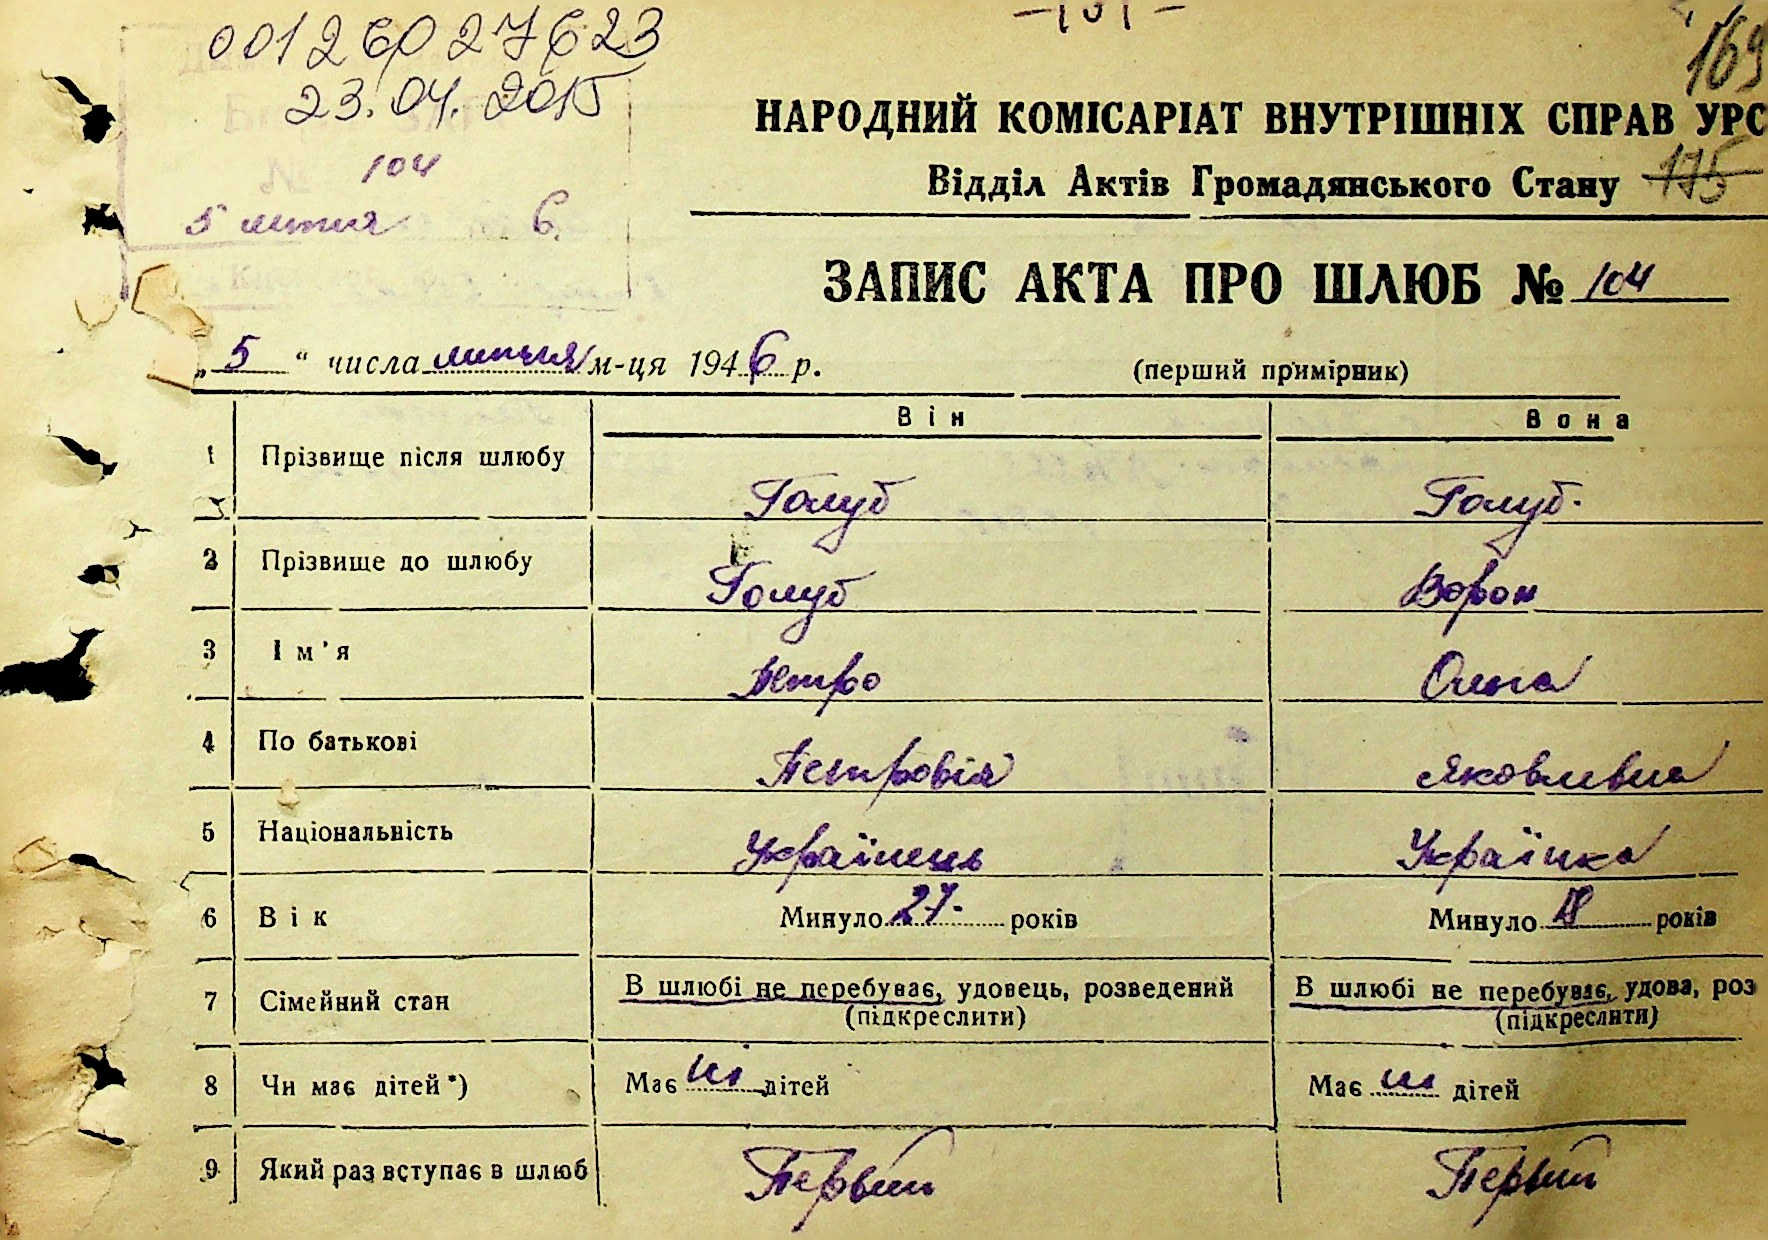 00126027623
23.04.2015
169
НАРОДНИЙ КОМІСАРІАТ ВНУТРІШНІХ СПРАВ УРС
104
Відділ Актів Громадянського Стану 175
5 липня 6
ЗАПИС АКТА ПРО ШЛЮБ № 104
„ 5 “ числа липня м-ця 1946 р. (перший примірник)
Він Вона
1 Прізвище після шлюбу Голуб Голуб.
2 Прізвище до шлюбу Голуб Ворон
3 Ім'я Петро Ольга
4 По батькові Петровія Яковлівна
5 Національність Українець Українка
6 Вік Минуло 27. років Минуло 18 років
7 Сімейний стан В шлюбі не перебуває, удовець, розведений В шлюбі не перебуває, удова, роз
(підкреслити) (підкреслити)
8 Чи має дітей *) Має ні дітей Має ні дітей
9 Який раз вступає в шлюб Первый Первый